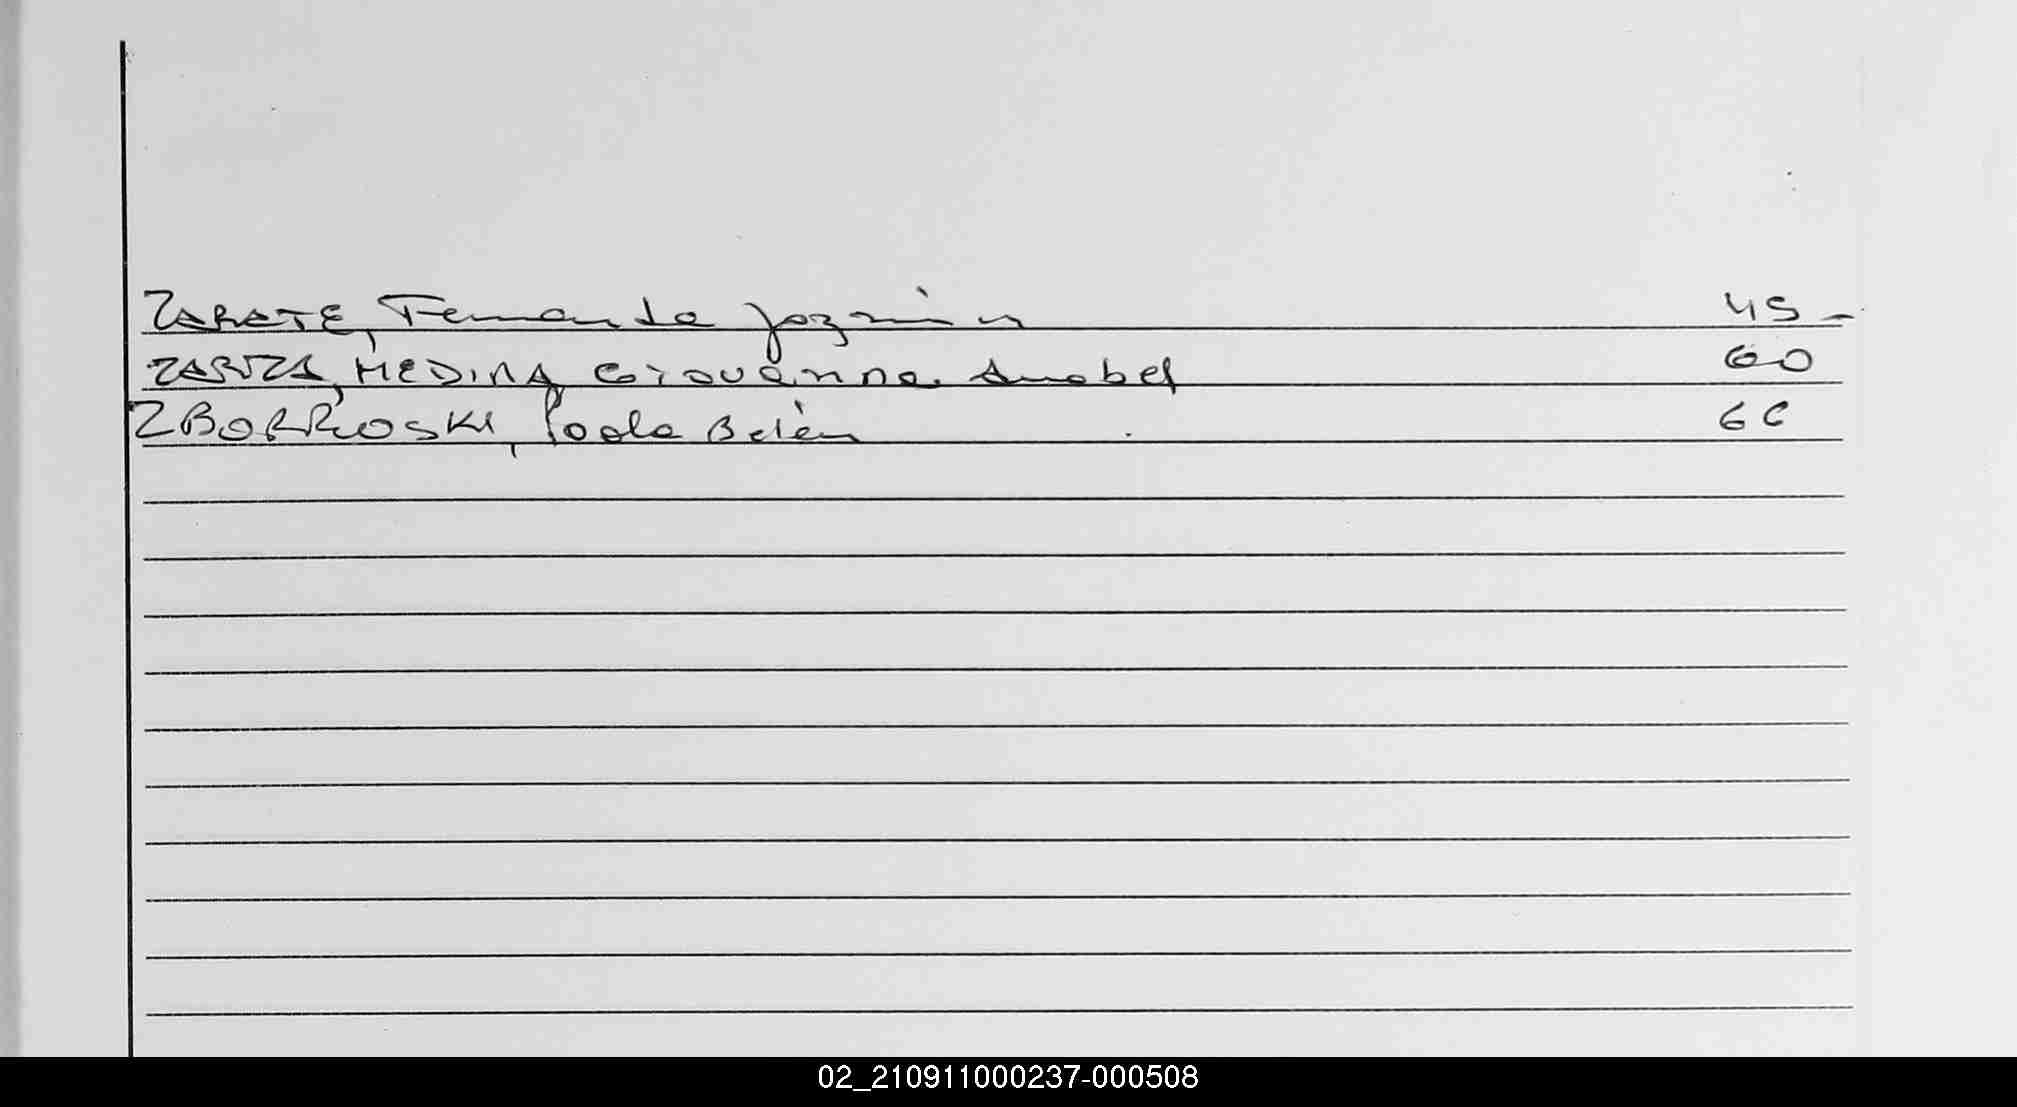 ZARATE, Fernanda Jazmín 45-
ZARZA, MEDINA, Giovanna Anabel 60
ZBOROSKI, Paola Belén 60
02_210911000237-000508